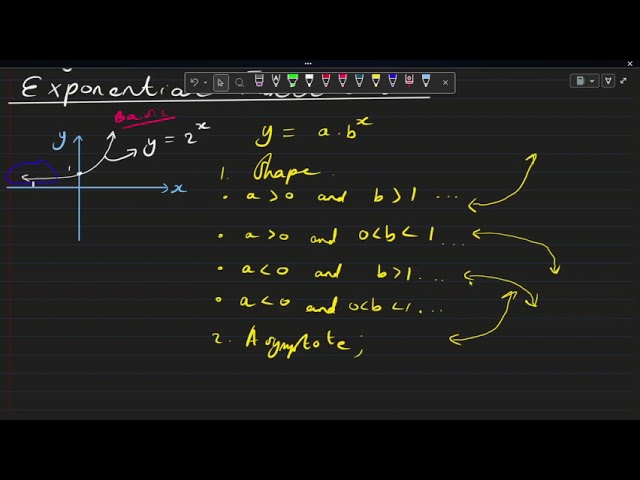 Exponential
Basic
y
y = 2^x
1
x
y = a.b^x
1. Shape.
• a > 0 and b > 1 ...
• a > 0 and 0<b< 1 ...
• a < 0 and b > 1 ...
• a < 0 and 0<b<1. ...
2. Asymptote;